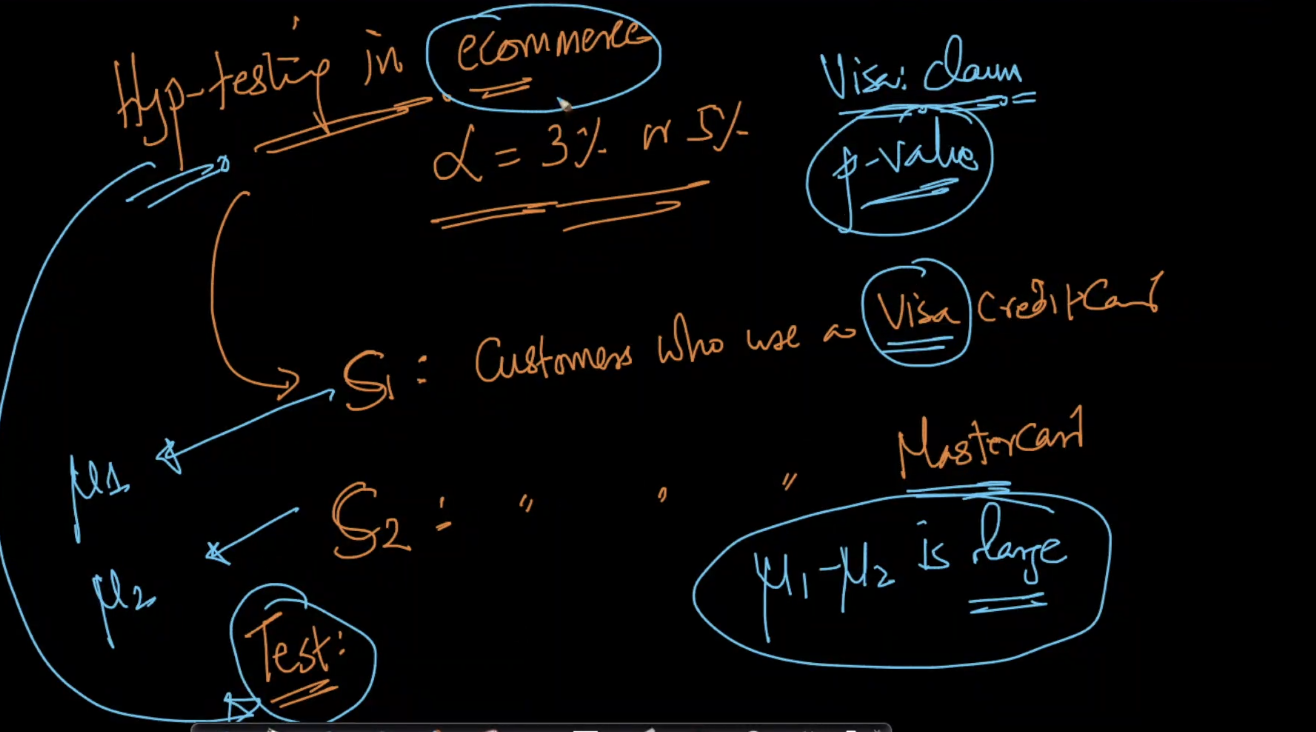 Hyp-testing in ecommerce
α = 3% or 5%
Visa: claim
p-value
S1: Customers who use a Visa CreditCard
S2: " " " Mastercard
μ1
μ2
μ1-μ2 is large
Test: